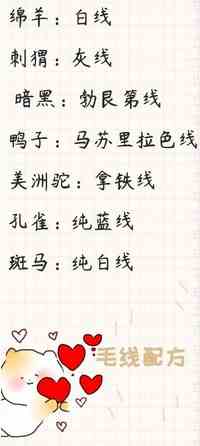 绵羊：白线
刺猬：灰线
暗黑：勃艮第线
鸭子：马苏里拉色线
美洲驼：拿铁线
孔雀：纯蓝线
斑马：纯白线
毛线配方